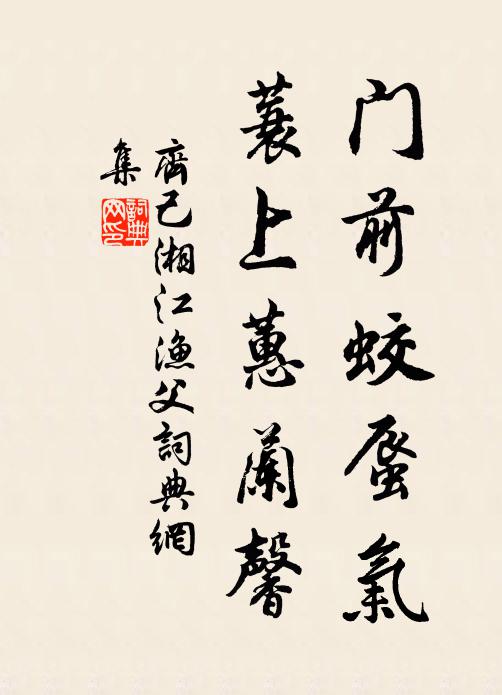 门前蛟蜃氣
蓑上蕙蘭馨
齊己湘江漁父詞典網
集
詞典網印